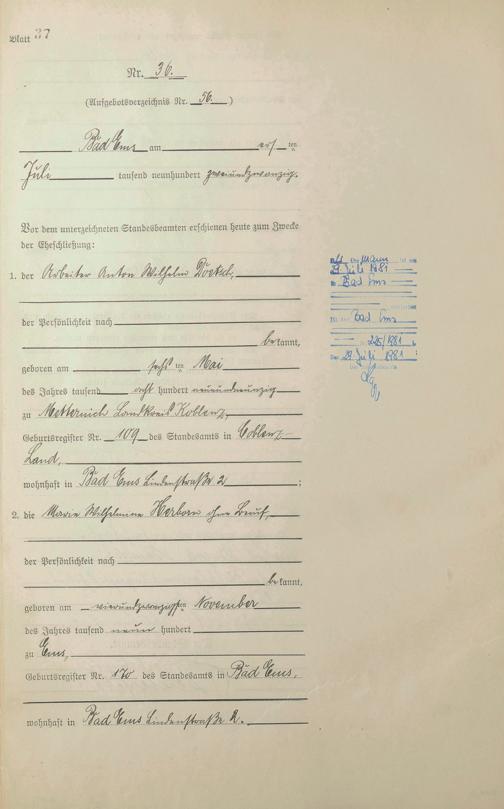 Blatt 37
Nr. 36.
(Aufgebotsverzeichnis Nr. 56.)
Bad Ems am ersten
Juli tausend neunhundert zweiundzwanzig.
Vor dem unterzeichneten Standesbeamten erschienen heute zum Zwecke
der Eheschließung:
1. der Arbeiter Anton Wilhelm
der Persönlichkeit nach
bekannt,
geboren am sechsten Mai
des Jahres tausend acht hundert neunundneunzig
zu Metternich Landkreis Koblenz,
Geburtsregister Nr. 109 des Standesamts in Coblenz-
Land,
wohnhaft in Bad Ems Lindenstraße 2;
2. die Marie Wilhelmine Herborn ohne Beruf,
der Persönlichkeit nach
bekannt,
geboren am vierundzwanzigsten November
des Jahres tausend neun hundert
zu Ems,
Geburtsregister Nr. 170 des Standesamts in Bad Ems,
wohnhaft in Bad Ems Lindenstraße 2.
Mann
Juli 1981
Bad Ems
Bad Ems
225/1981
29. Juli 1981